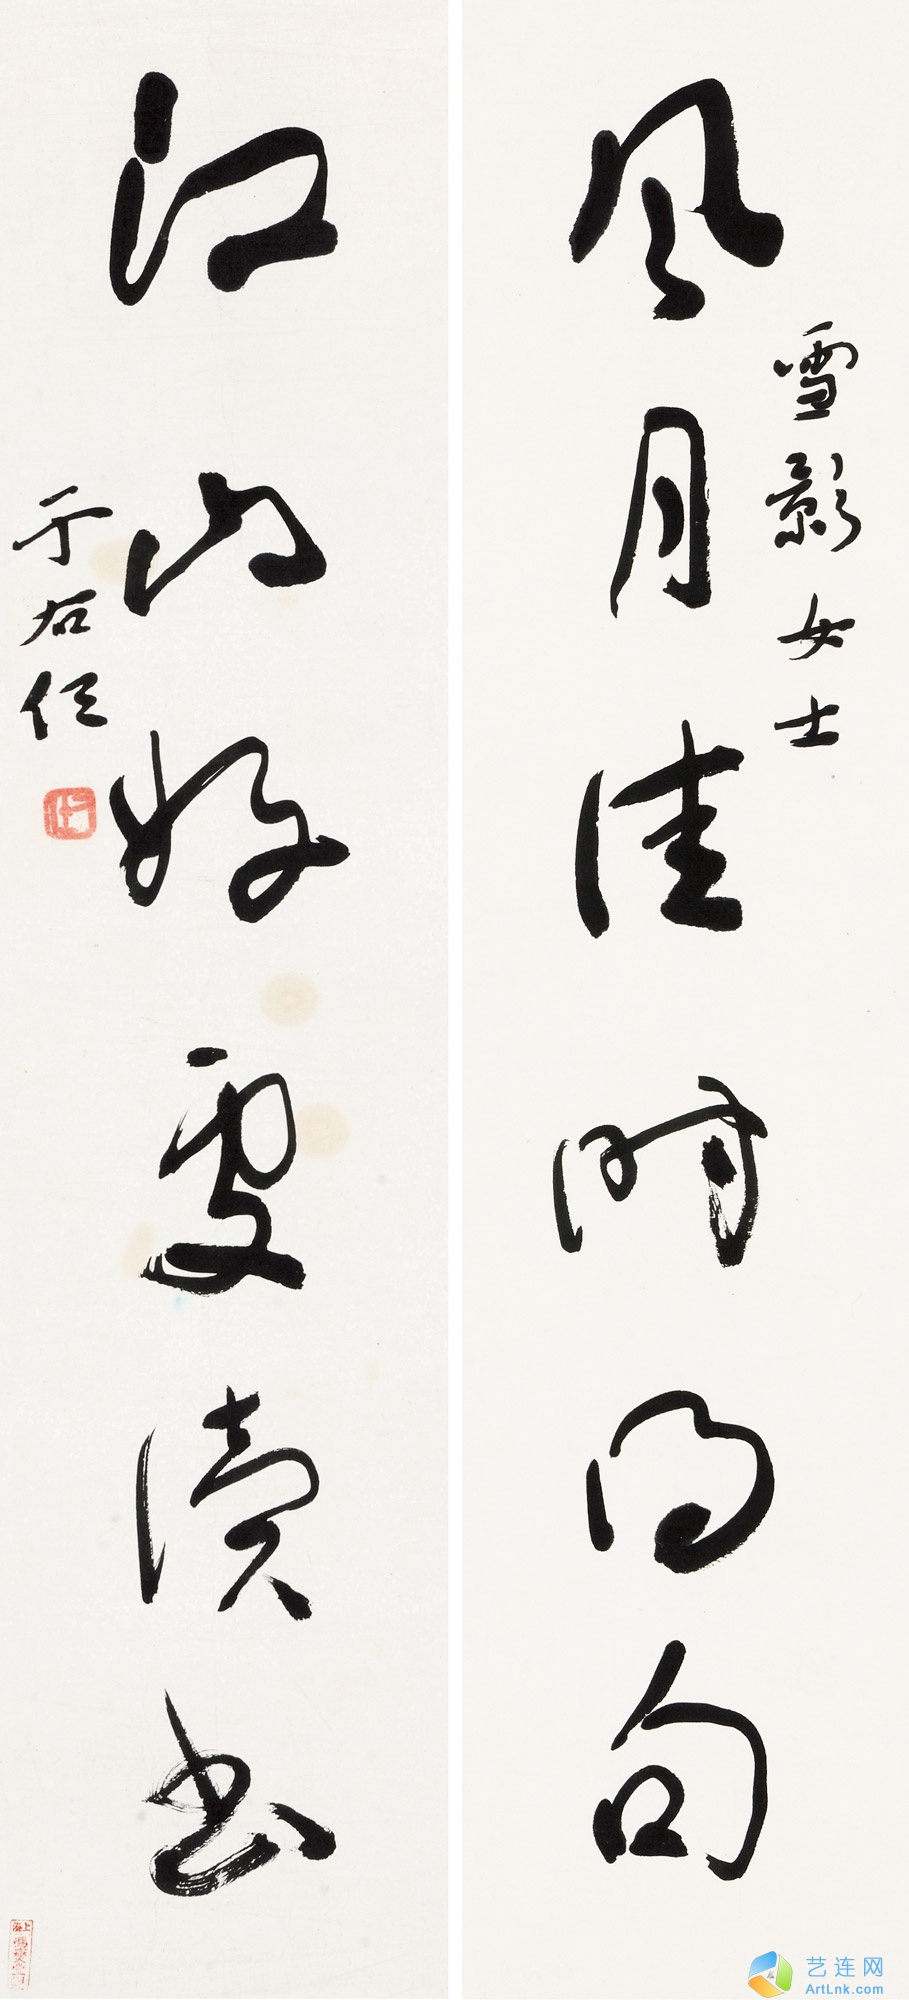 雪影女士
风月佳时得句
江山好处读书
于右任
艺连网
ArtLnk.com